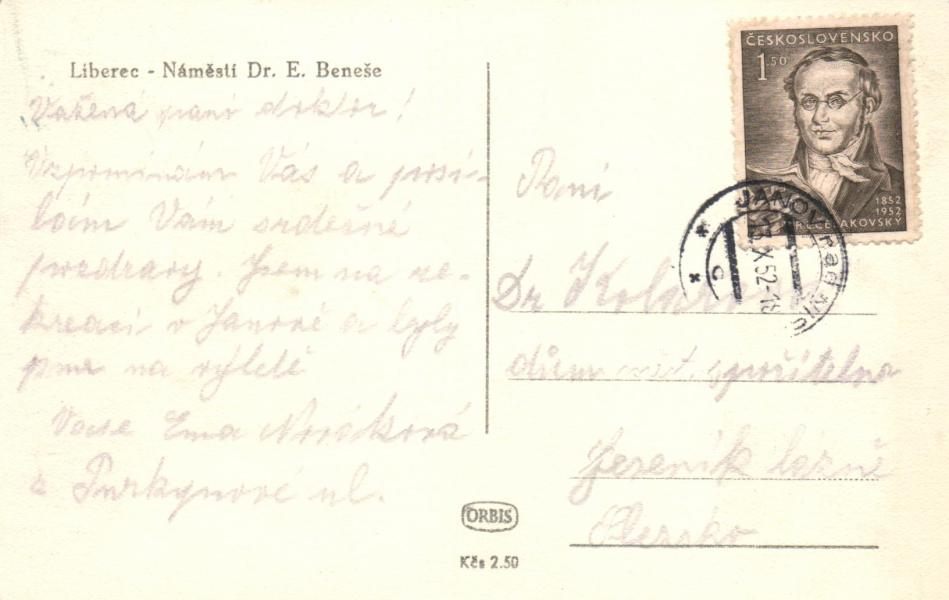 Liberec - Náměstí Dr. E. Beneše
Vážená paní doktor!
Vzpomínám Vás a posí-
lám Vám srdečné
pozdravy. Jsem na re-
kreaci v Janově a byly
jsme na výletě
Vaše Ema Nováková
z Purkyňové ul.
ČESKOSLOVENSKO
1.50
1852
1952
JANOV
X 52-18
Paní
Dr
dům spořitelna
Jeseník lázně
Slezsko
ORBIS
Kčs 2.50